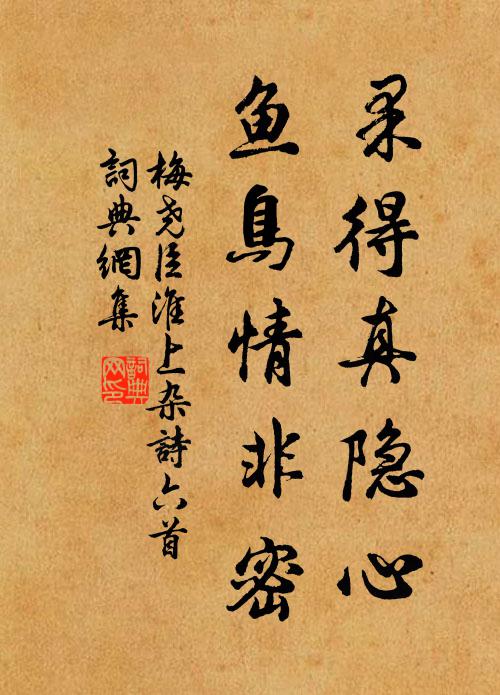 果得真隐心
鱼鳥情非密
梅尧臣淮上杂詩六首
詞典網集
詞典网印